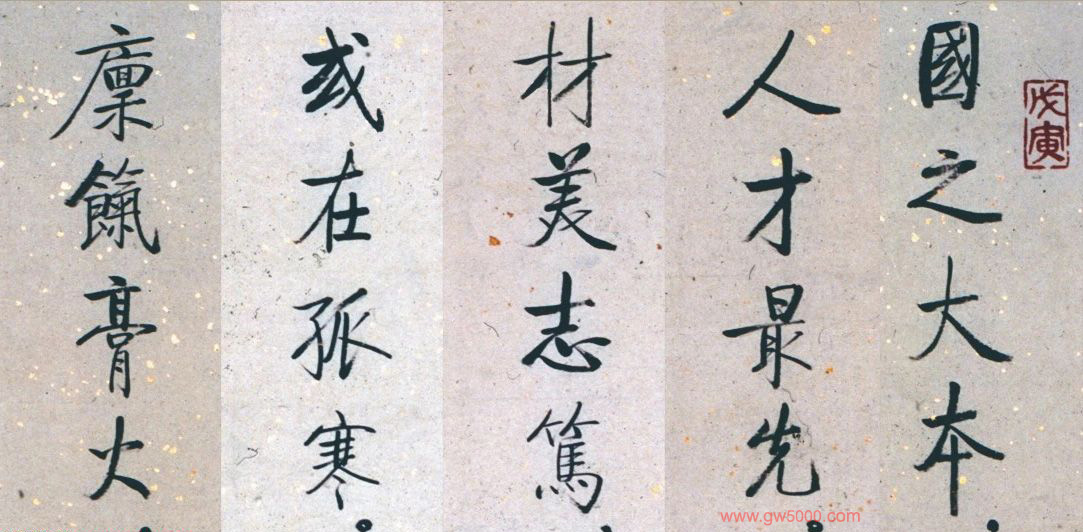 戊寅
國之大本
人才最先。
材美志篤
或在孤寒。
廩餼膏火
www.gw5000.com